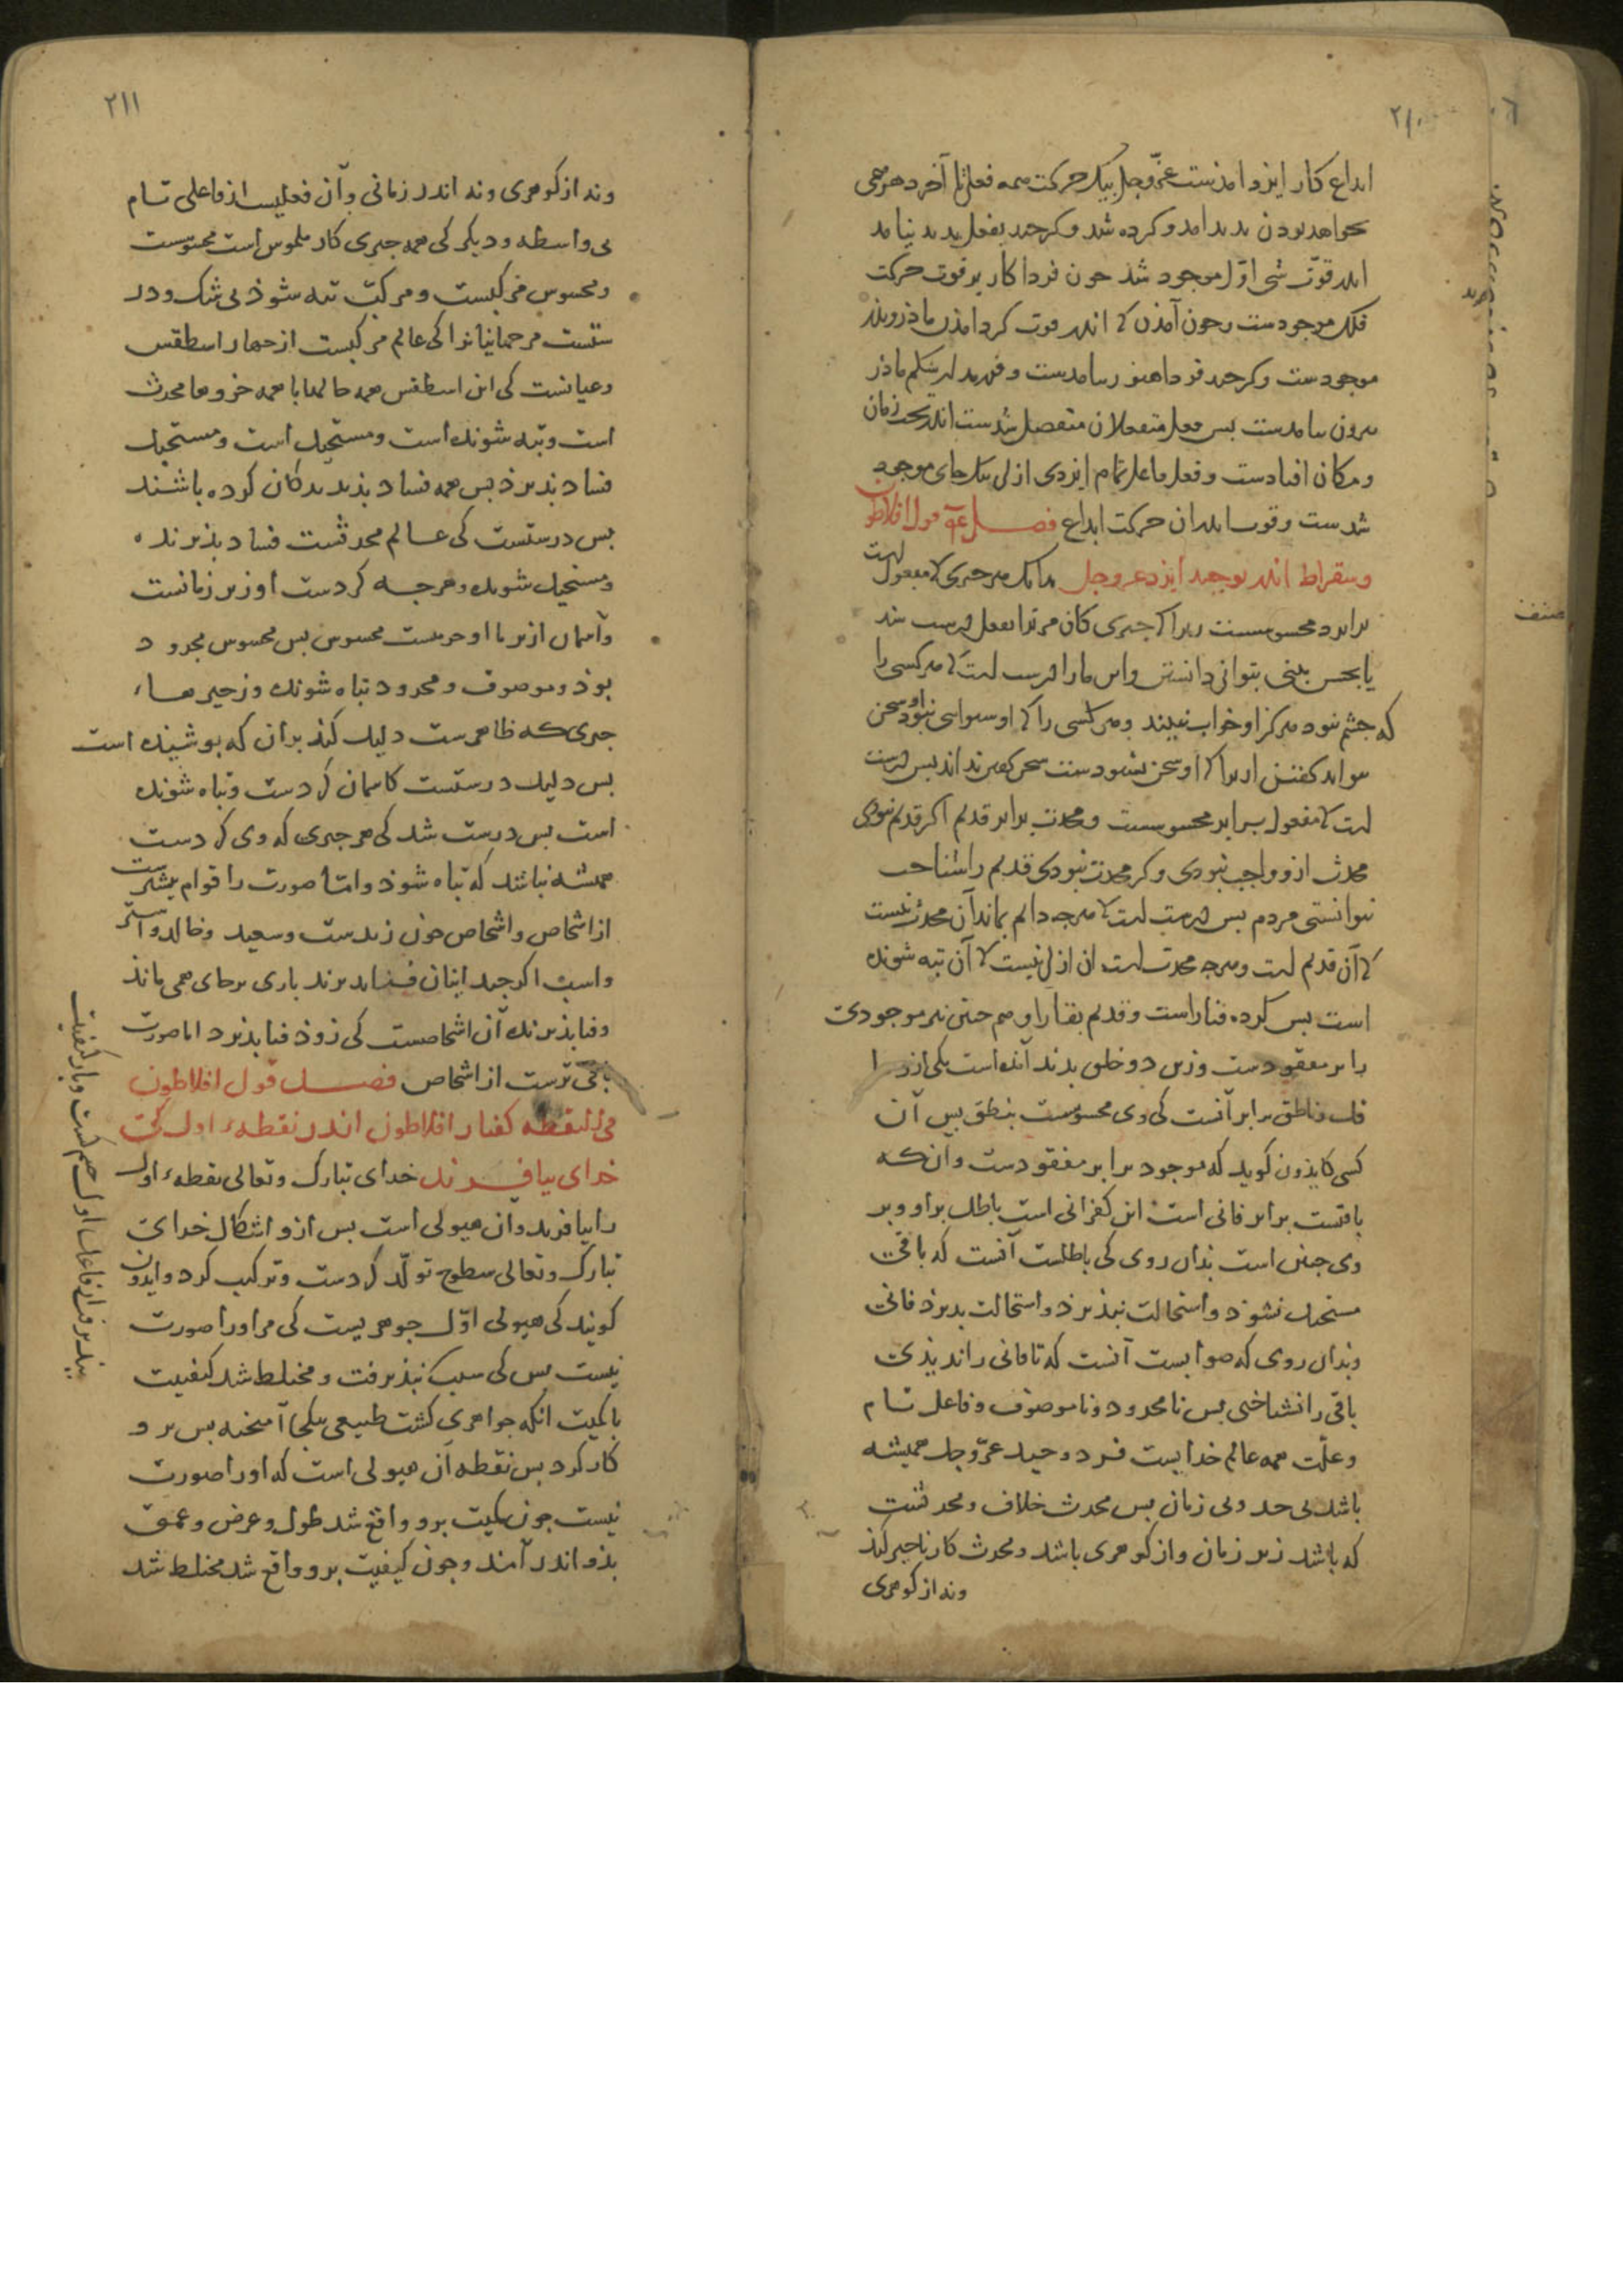 ۲۱۰
ابداع کار ایزد امذست عزّ وجل بیک حرکت همه فعلش تا آخر دهر همی
بخواهد بودن بدید امد و کرده شد و کرچند بفعل بدید نیامد
اندر قوّت شی اوّل موجود شد جون فردا کار بر قوت حرکت
فلک موجودست وجون آمذن که اندر قوت کرد امذن ماذر وبذر
موجودست وکرچند فردا هنوز نیامدست و فرزند از شکم ماذر
بیرون نیامدست بس فعل منفعلان منفصل شدست اندر تحت زمان
ومکان افتادست و فعل فاعل تمام ایزدی ازلی بیک جای موجود
شدست وقوت اندران حرکت ابداع فصل قول افلاطون
وسقراط اندر توحید ایزد عزوجل بدانک هر جیزی که مفعول است
برابر محسوسست زیرا که جیزی کان مر ترا بفعل درست شد
یا بحس بینی بتوانی دانستن واین مارا درست است که هر کسی را
که جشم نبود هرکز او خواب نبیند وهر کسی را که او شنوایی نبود او سخن
نتواند کفتن ازیرا که او سخن نشنودست سخن کفتن نداند بس درست
است که مفعول برابر محسوسست و محدث برابر قدیم اکر قدیم نبودی
محدث ازو واجب نبودی وکر محدث نبودی قدیم را شناخت
نتوانستی مردم بس درست است که هرجه دایم بماند آن محدث نیست
که آن قدیم است وهرجه محدث است ان ازلی نیست که آن تبه شونده
است بس کرده فنا راست وقدیم بقا را وهم جنین هر موجودی
برابر مفقودست وزین دو خلق بدید آمده است یکی ازو را
قلب وناطق برابر آنست کی وی محسوسست بنطق بس آن
کسی کایذون کوید که موجود برابر مفقودست وان که
باقیست برابر فانی است این کفرانی است باطل براو و بر
وی جنین است بذان روی کی باطلست آنست که باقی
مستحیل نشوذ و استحالت نبذیرذ و استحالت بذیرذ فانی
وبذان روی که صوابست آنست که تا فانی را ندیذی
باقی را نشناختی بس نامحدود و ناموصوف و فاعل تمام
وعلّت همه عالم خدایست فرد وحید عزّوجل همیشه
باشد بی حد وبی زمان بس محدث خلاف ومحدثست
که باشد زیر زمان واز کوهری باشد ومحدث کار ناجیز کند
ونه از کوهری
مصنف
۲۱۱
ونه از کوهری ونه اندر زمانی وآن فعلیست از فاعلی تمام
بی واسطه ودیکر کی همه جیزی کان ملموس است محسوست
ومحسوس مرکبست ومرکب تبه شوذ بی شک ودر
ستست مر جهانیانرا کی عالم مرکبست از جهار اسطقس
وعیانست کی این اسطقس همه حالها با همه جزوها محدث
است وتبه شونده است ومستحیل است ومستحیل
فساد بذیرذ بس همه فساد بذیرند کان کرده باشند
بس درستست کی عالم محدثست فساد بذیرنده
ومستحیل شونده وهرجه کردست او زیر زمانست
وآسمان از بر ما او حرست محسوس بس محسوس محدود
بوذ وموصوف ومحدود تباه شونده وزجیرها
جیزی که ظاهرست دلیل کند بران که بوشیده است
بس دلیل درستست کاسمان کردست وتباه شونده
است بس درست شد کی هر جیزی که وی کردست
همیشه نباشد که تباه شوذ واما صورت را قوام بیشترست
از اشخاص واشخاص جون زیدست وسعید وخالد و استر
واسب اکرجه اینان فنا بذیرند باری برجای همی ماند
وفنا بذیرنده آن اشخاصست کی زوذ فنا بذیرد اما صورت
باقی ترست از اشخاص فصل قول افلاطون
فی النقطه کفتار افلاطون اندر نقطهٔ اول کی
خدای بیافرید خدای تبارک وتعالی نقطهٔ اول
را بیافرید وان هیولی است بس ازو اشکال خدای
تبارک وتعالی سطوح تولّد کردست وترکیب کرد وایدون
کویند کی هیولی اوّل جوهریست کی مر اورا صورت
نیست بس کی سبب نبذیرفت ومختلط شد کیفیت
با کمیت انکه جواهری کشت طبیعی بیکجا آمیخته بس برو
کار کرد بس نقطه آن هیولی است که اورا صورت
نیست جون کمیت برو واقع شد طول وعرض وعمق
بذو اندر آمذ وجون کیفیت برو واقع شد مختلط شد